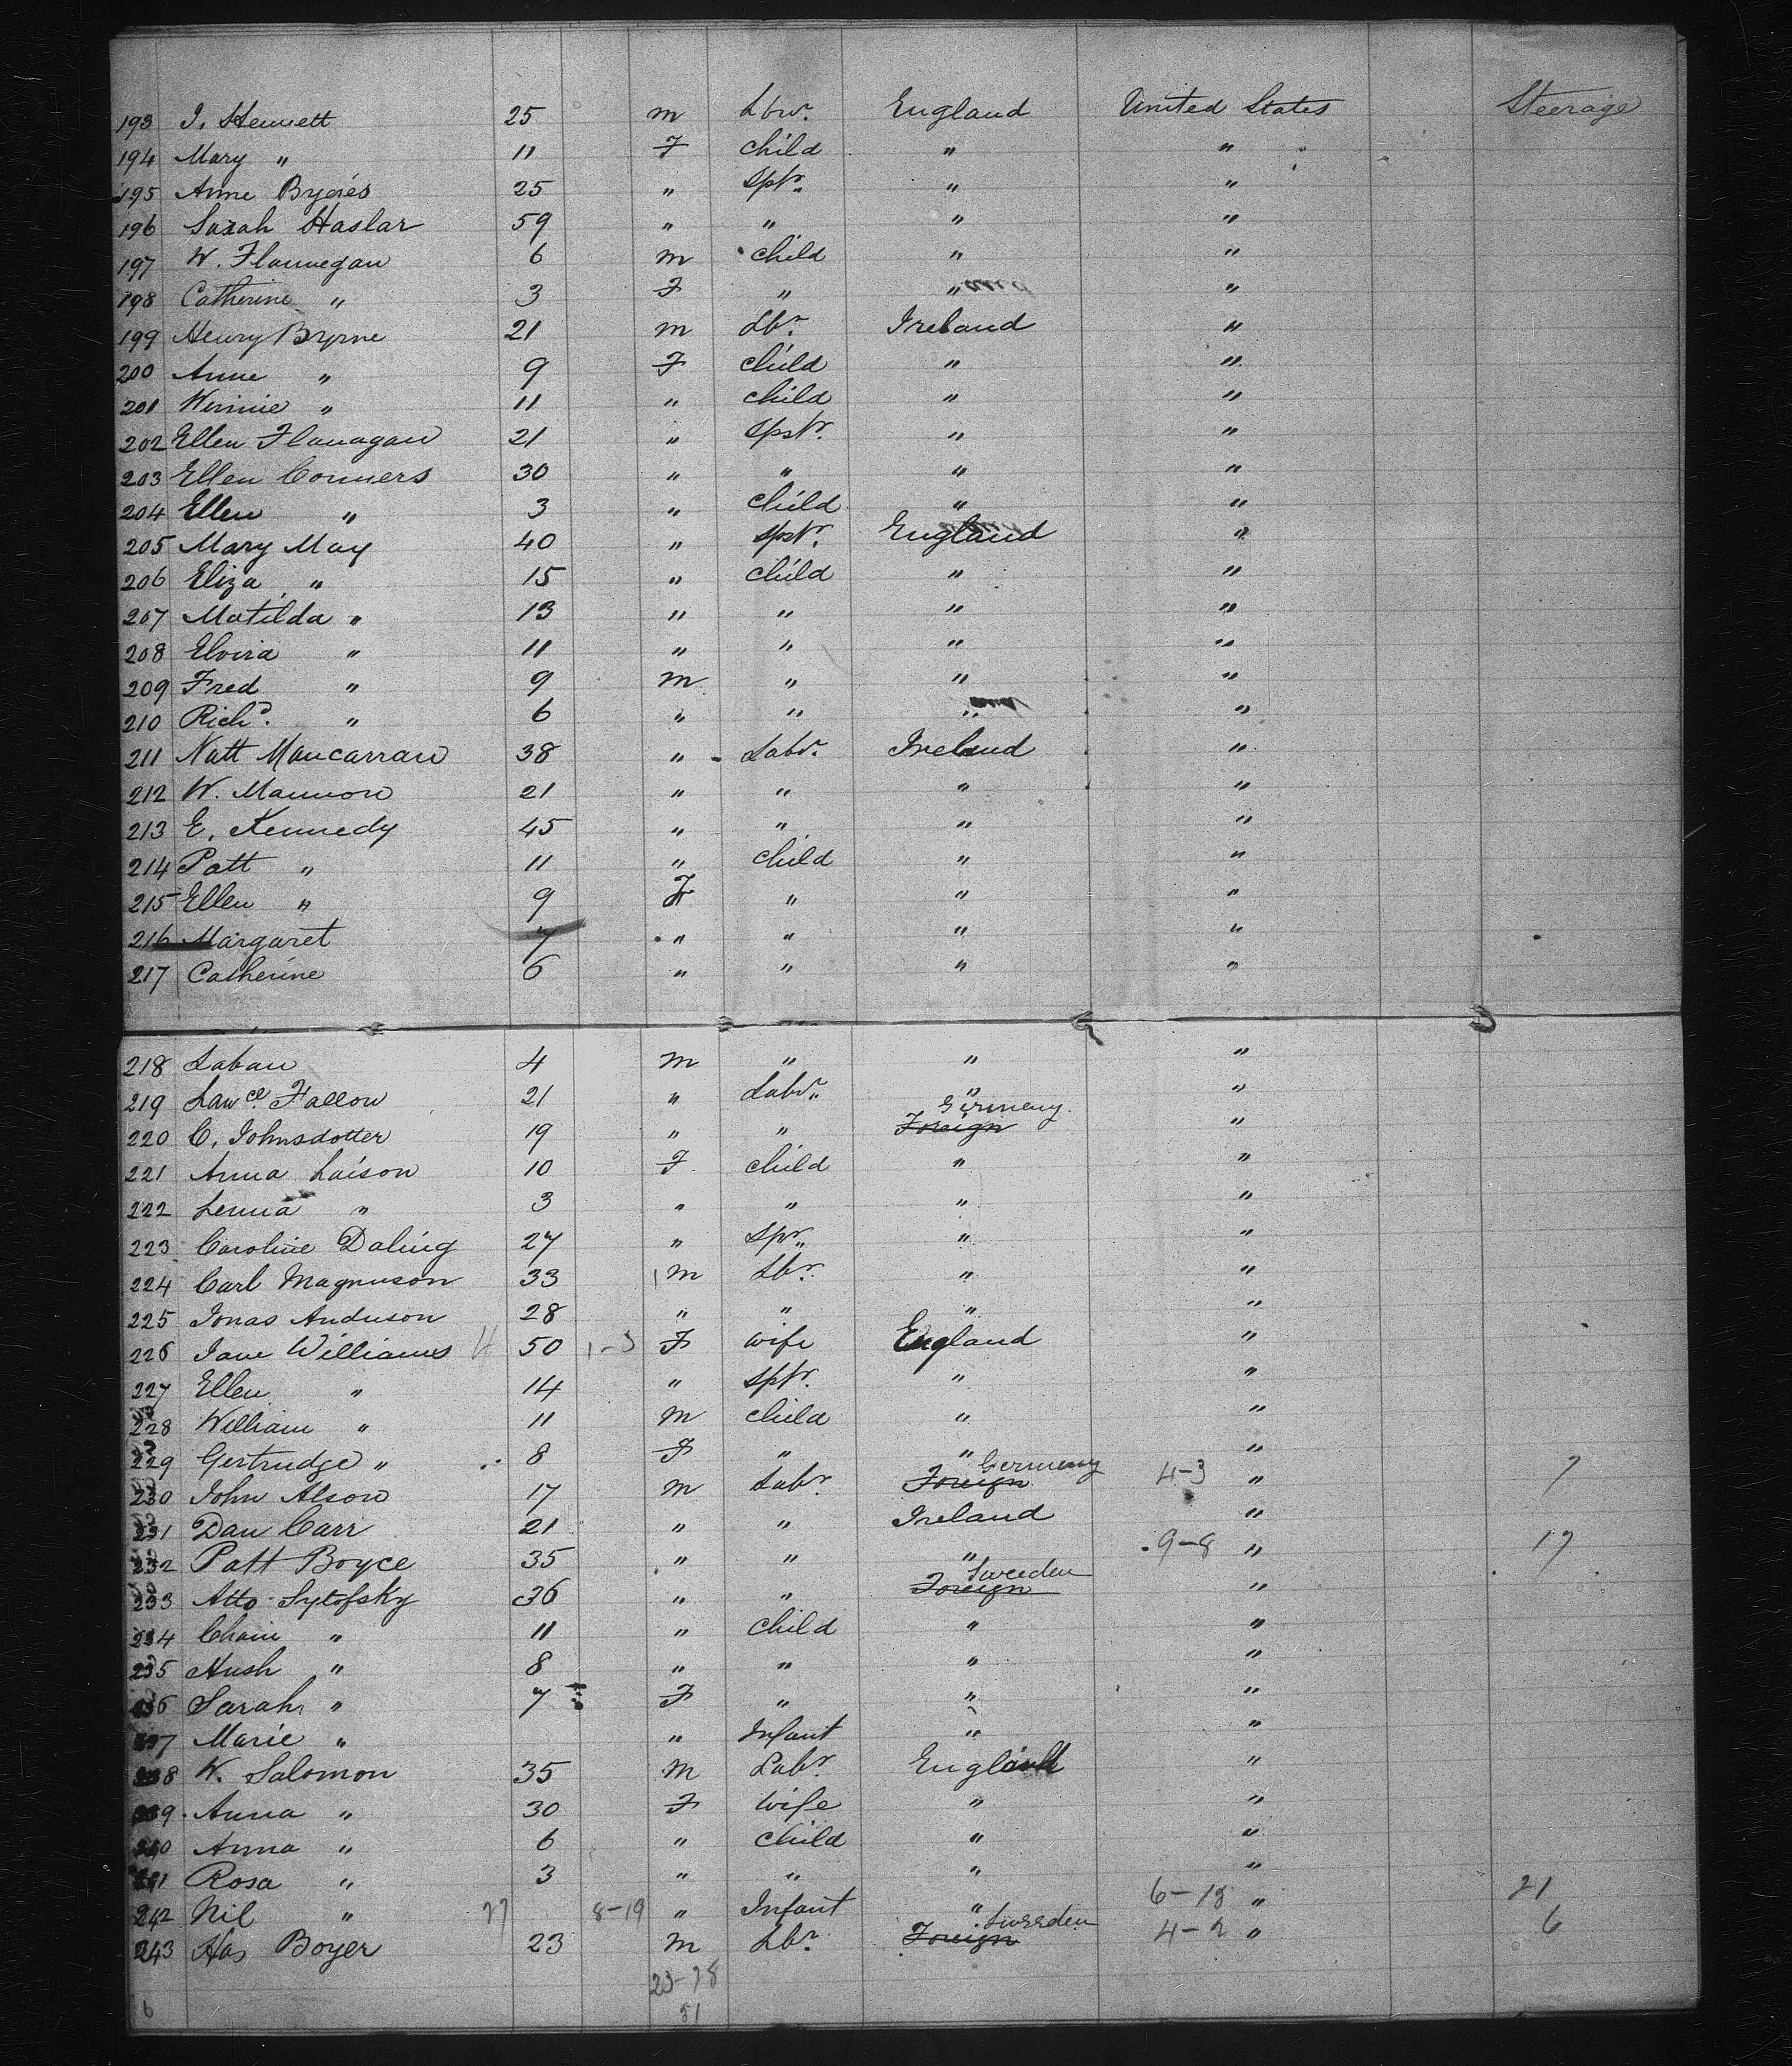 193 J. Hewett 25 m Lbr. England United States Steerage
194 Mary " 11 F child " "
195 Anne Byeres 25 " Sptr. " "
196 Sarah Haslar 59 " " " "
197 W. Flannegan 6 m child " "
198 Catherine " 3 F " " "
199 Henry Byrne 21 m Lbr. Ireland "
200 Anne " 9 F child " "
201 Winnie " 11 " child " "
202 Ellen Flanagan 21 " Spstr. " "
203 Ellen Conners 30 " " " "
204 Ellen " 3 " child " "
205 Mary May 40 " Spstr. England "
206 Eliza " 15 " child " "
207 Matilda " 13 " " " "
208 Elvira " 11 " " " "
209 Fred " 9 m " " "
210 Richd. " 6 " " " "
211 Natt Mancarran 38 " Labr. Ireland "
212 W. Mannon 21 " " " "
213 E. Kennedy 45 " " " "
214 Patt " 11 " child " "
215 Ellen " 9 F " " "
216 Margaret 7 " " " "
217 Catherine 6 " " " "
218 Laban 4 m " " "
219 Lawce. Fallon 21 " Labr. " "
Germeny
220 C. Johnsdotter 19 " " Foreign "
221 Anna Laison 10 F child " "
222 Lenna " 3 " " " "
223 Caroline Daling 27 " Spr. " "
224 Carl Magnuson 33 m Lbr. " "
225 Jonas Anduson 28 " " " "
226 Jane Williams 50 1-3 F wife England "
227 Ellen " 14 " Sptr. " "
228 William " 11 m child " "
229 Gertrudge " 8 F " " "
Germeny
230 John Alson 17 m Labr. Foreign 4-3 " 7
231 Dan Carr 21 " " Ireland "
232 Patt Boyce 35 " " " 9-8 " 17
Sweeden
233 Atto Sytofsky 36 " " Foreign "
234 Chain " 11 " child " "
235 Hush " 8 " " " "
236 Sarah " 7 F " " "
237 Marie " " Infant " "
238 W. Salomon 35 m Labr. England "
239 Anna " 30 F Wife " "
240 Anna " 6 " child " "
241 Rosa " 3 " " " "
242 Nil " 8-19 " Infant " 6-15 " 21
Sweeden
243 Has Boyer 23 m Lbr. Foreign 4-2 " 6
23-28
51
6